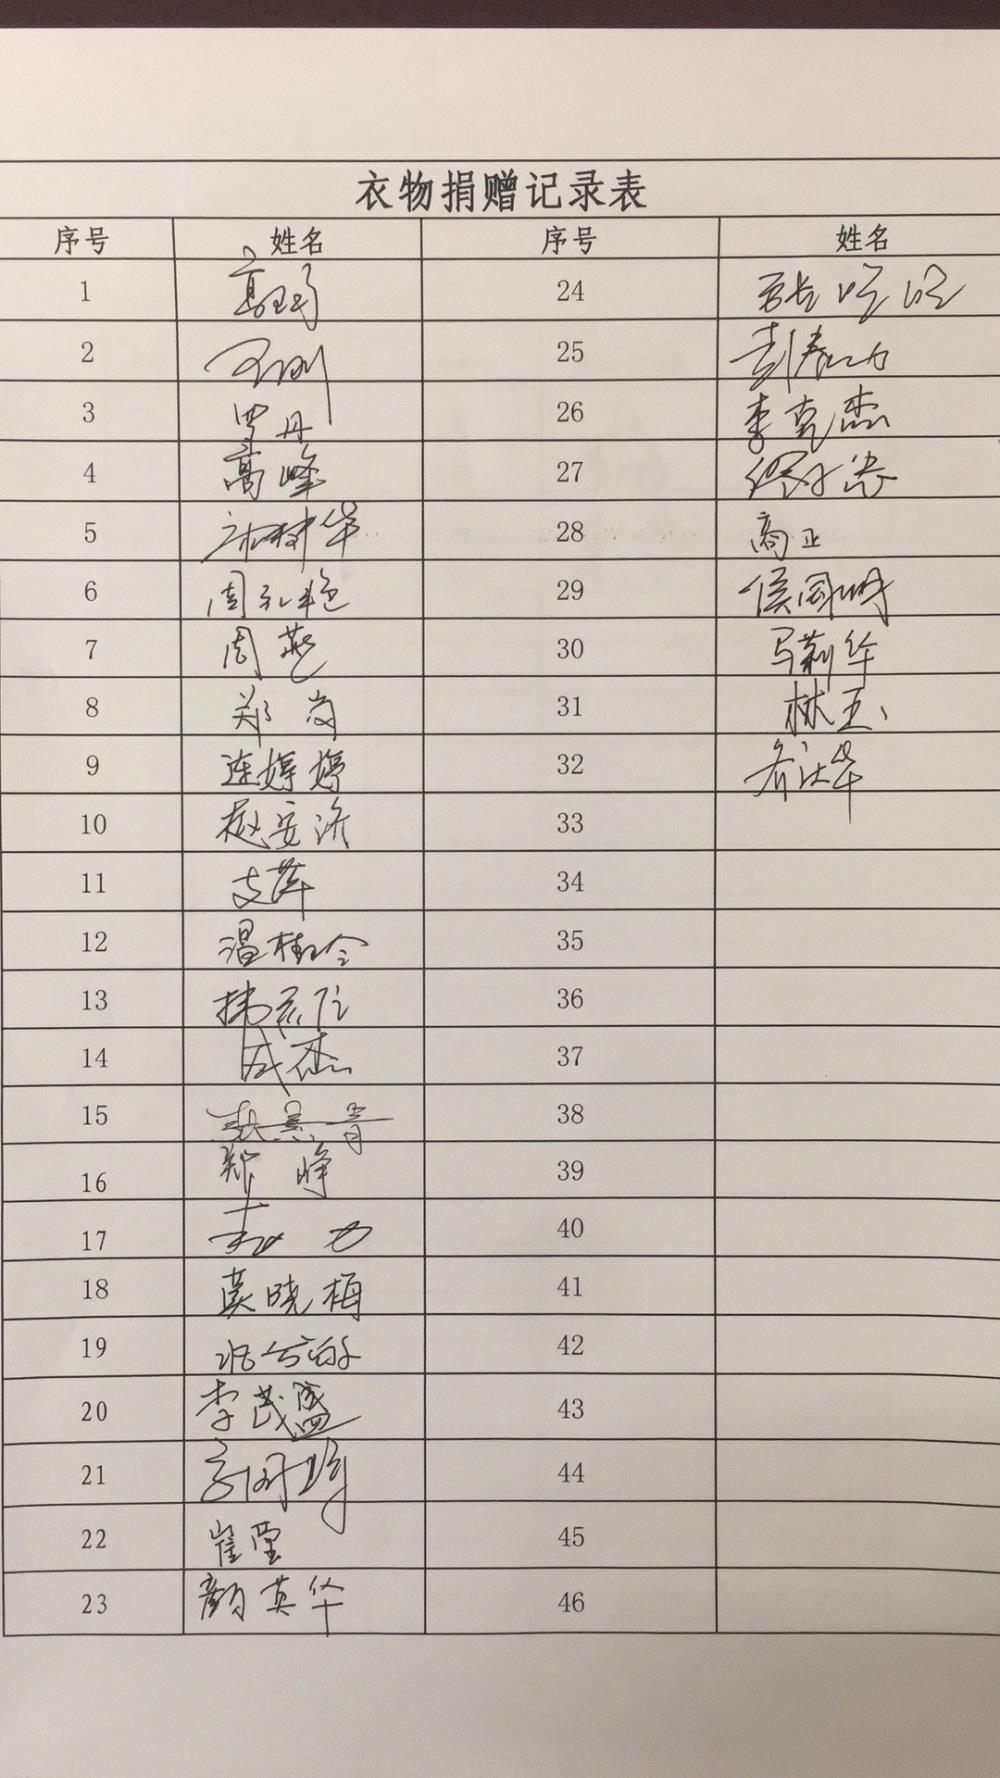 衣物捐赠记录表
序号 姓名 序号 姓名
1 24
2 王刚 25
3 罗丹 26 李克杰
4 高峰 27
5 华 28 高正
6 周礼艳 29 侯国明
7 周燕 30 马莉华
8 郑岗 31 林玉
9 连婷婷 32 华
10 赵安济 33
11 支萍 34
12 温桂 35
13 36
14 成杰 37
15 38
16 郑峥 39
17 力 40
18 莫晓梅 41
19 42
20 李茂盛 43
21 44
22 崔莹 45
23 颜英华 46